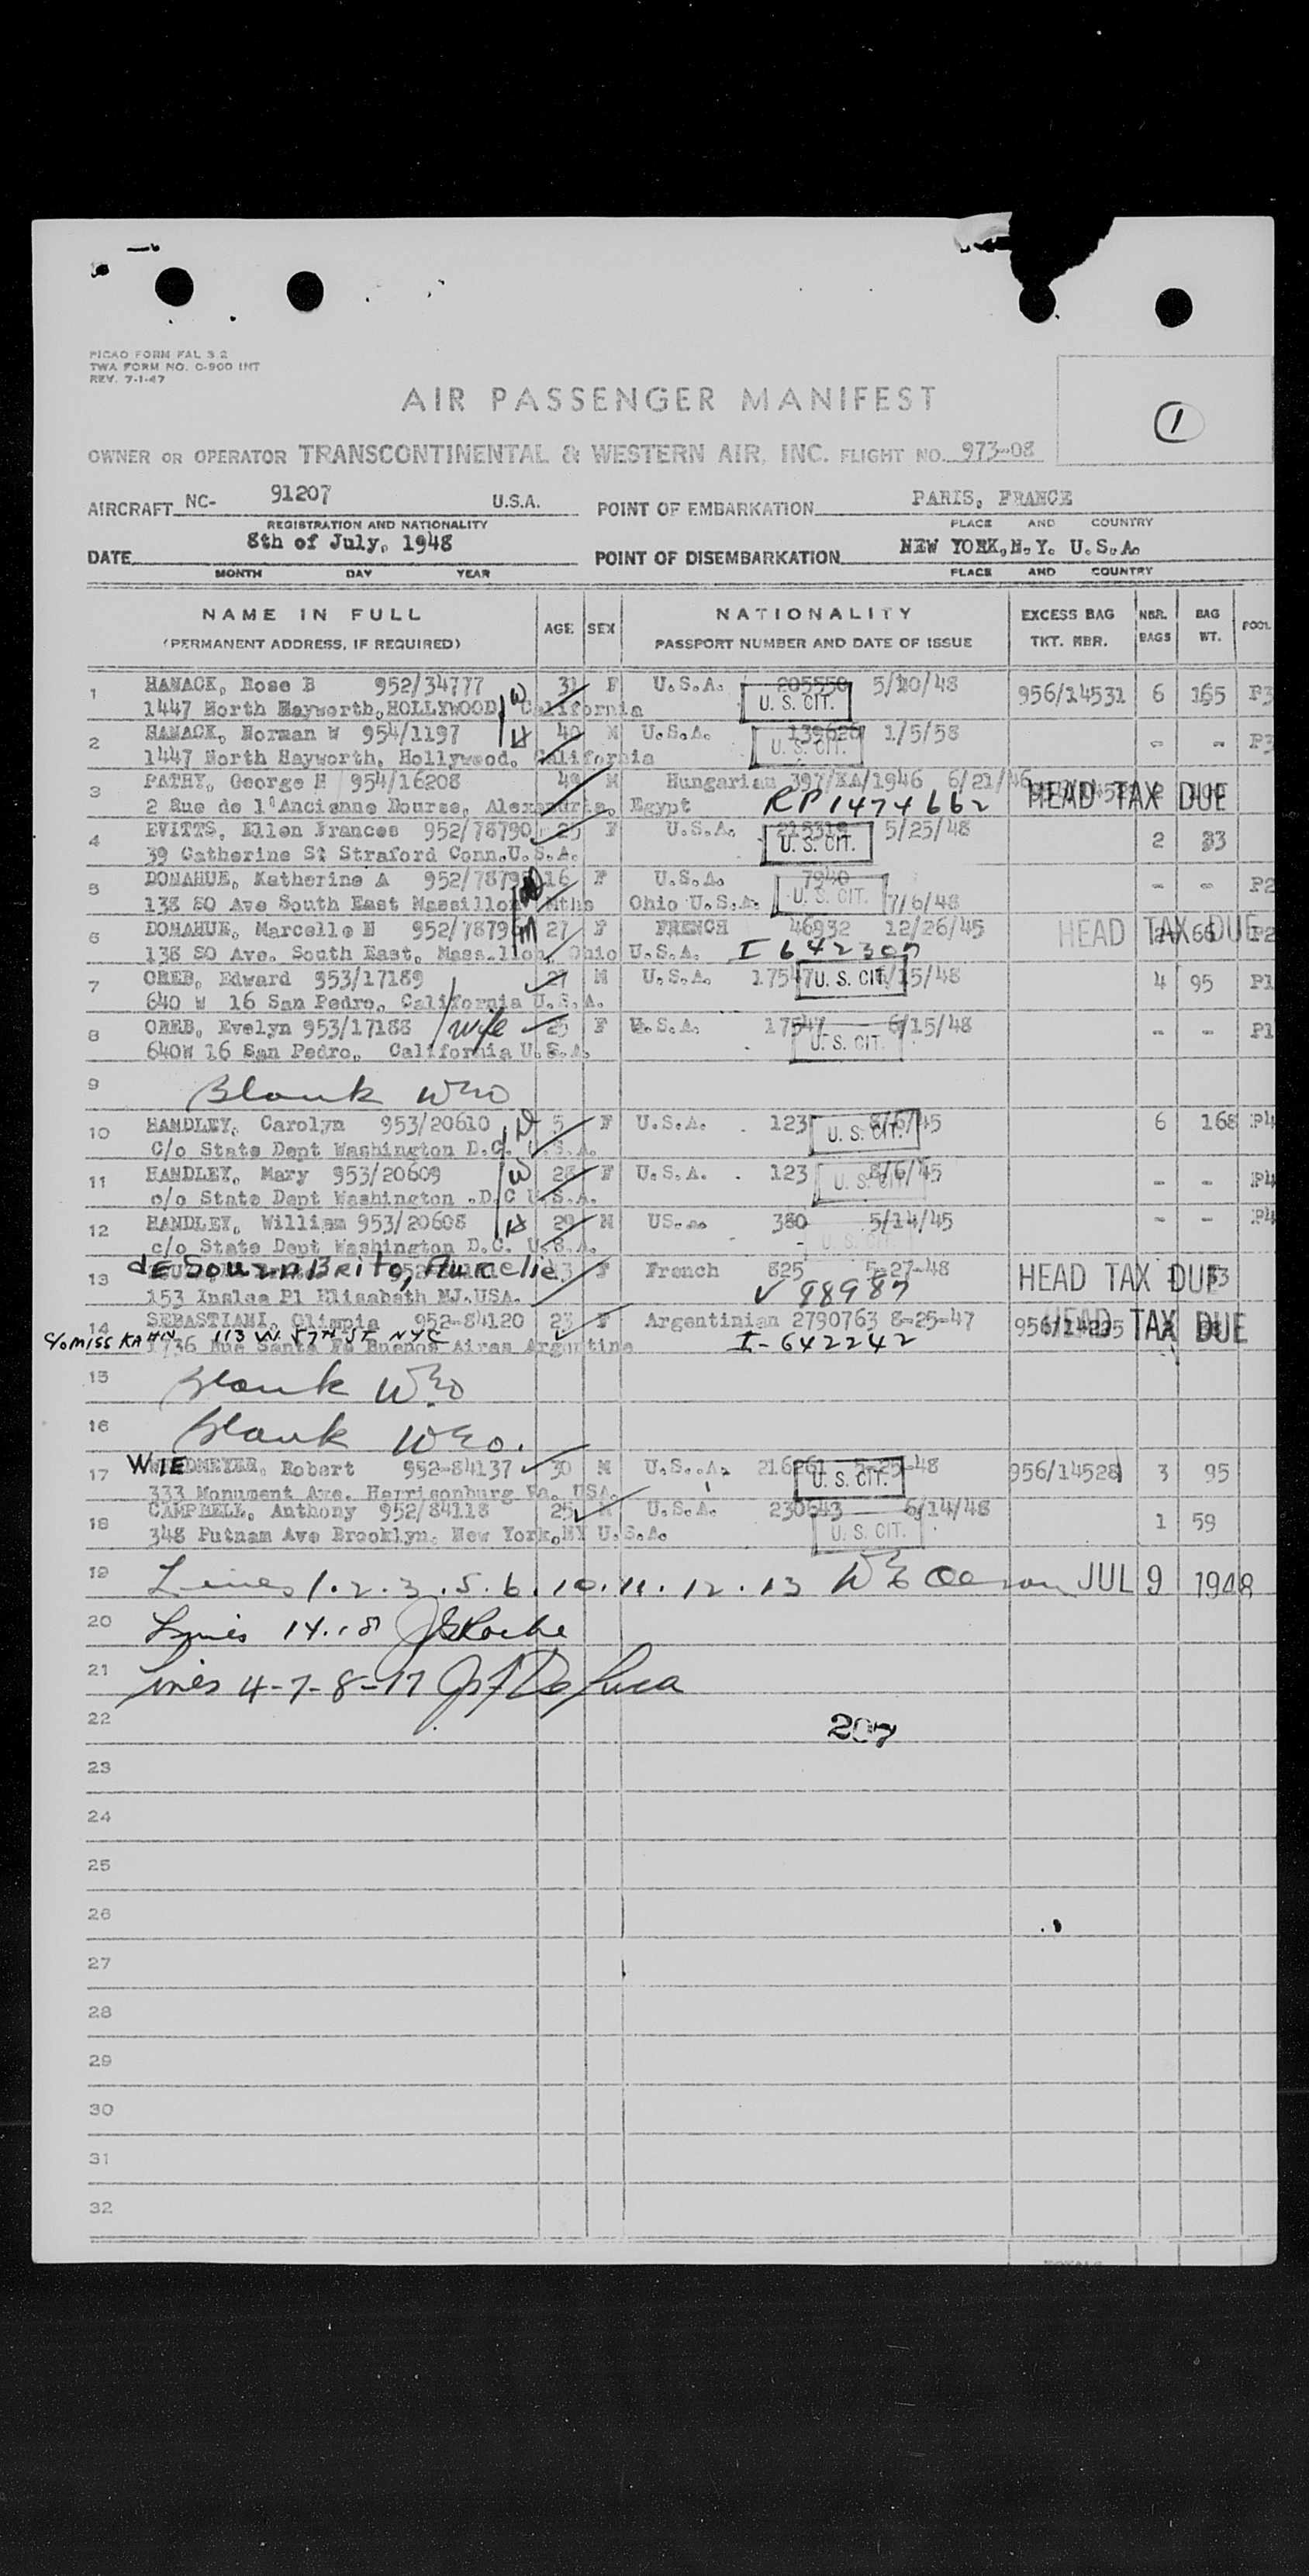 PICAO FORM FAL 3.2
TWA FORM NO. O-900 INT
REV. 7-1-47
1
AIR PASSENGER MANIFEST
OWNER OR OPERATOR TRANSCONTINENTAL & WESTERN AIR, INC. FLIGHT NO. 973-08
AIRCRAFT NC- 91207 U.S.A. POINT OF EMBARKATION PARIS, FRANCE
REGISTRATION AND NATIONALITY PLACE AND COUNTRY
DATE 8th of July, 1948 POINT OF DISEMBARKATION NEW YORK,N.Y. U.S.A.
MONTH DAY YEAR PLACE AND COUNTRY
NAME IN FULL AGE SEX NATIONALITY EXCESS BAG NBR. BAG POOL
(PERMANENT ADDRESS, IF REQUIRED) PASSPORT NUMBER AND DATE OF ISSUE TKT. NBR. BAGS WT.
1 HANACK, Rose B 952/34777 W 31 F U.S.A. 205550 5/20/48 956/14531 6 165 P3
1447 North Hayworth,HOLLYWOOD, California U. S. CIT.
2 HANACK, Norman W 954/1197 H 40 M U.S.A. 139626 1/5/58 - - P3
1447 North Hayworth, Hollywood, California U. S. CIT.
3 PATHY, George H 954/16208 49 M Hungarian 397/KA/1946 6/21/46 HEAD TAX DUE
2 Rue de l'Ancienne Bourse, Alexandria, Egypt RP1474662
4 EVITTS, Ellen Frances 952/78790 25 F U.S.A. 5/25/48 2 33
39 Catherine St Straford Conn.U.S.A. U. S. CIT.
5 DONAHUE, Katherine A 952/7879 16 F U.S.A. 7940 - - P2
138 SO Ave South East Massillon Mths Ohio U.S.A. U. S. CIT. 7/6/48
6 DONAHUE, Marcelle H 952/7879 M 27 F FRENCH 46932 12/26/45 HEAD TAX DUE 66 P2
138 SO Ave. South East, Massillon, Ohio U.S.A. I 642307
7 OREB, Edward 953/17189 27 M U.S.A. 17547 U. S. CIT. /15/48 4 95 P1
640 W 16 San Pedro, California U.S.A.
8 OREB, Evelyn 953/17188 wife 25 F U.S.A. 17547 6/15/48 - - P1
640W 16 San Pedro, California U.S.A. U. S. CIT.
9 Blank WEO
10 HANDLEY, Carolyn 953/20610 D 5 F U.S.A. 123 8/6/45 6 168 P4
C/o State Dept Washington D.C. U.S.A. U. S. CIT.
11 HANDLEY, Mary 953/20609 W 28 F U.S.A. 123 8/6/45 - - P4
c/o State Dept Washington .D.C U.S.A. U. S. CIT.
12 HANDLEY, William 953/20608 H 29 M US.. 380 5/14/45 - - P4
c/o State Dept Washington D.C. U.S.A. U. S. CIT.
13 dE SouzaBrito, Aurelie F French 825 5-27-48 HEAD TAX DUE 33
153 Inslee Pl Elisabeth NJ.USA. V 98987
14 SEBASTIANI, Olimpia 952-84120 23 F Argentinian 2790763 8-25-47 HEAD TAX DUE
C/o MISS KAHN 113 W. 57TH ST NYC 1736 Rue Santa Fe Buenos Aires Argentine I-642242
15 Blank WEO
16 Blank WEO.
17 WIEDMEYER, Robert 952-84137 30 M U.S..A. 216261 5-25-48 956/14528 3 95
333 Monument Ave. Harrisonburg Va. USA. U. S. CIT.
18 CAMPBELL, Anthony 952/84118 25 M U.S.A. 230643 6/14/48 1 59
348 Putnam Ave Brooklyn, New York,NY U.S.A. U. S. CIT.
19 Lines 1.2.3.5.6.10.11.12.13 JUL 9 1948
20 Lines 14.18
21 Lines 4-7-8-17
22 207
23
24
25
26
27
28
29
30
31
32